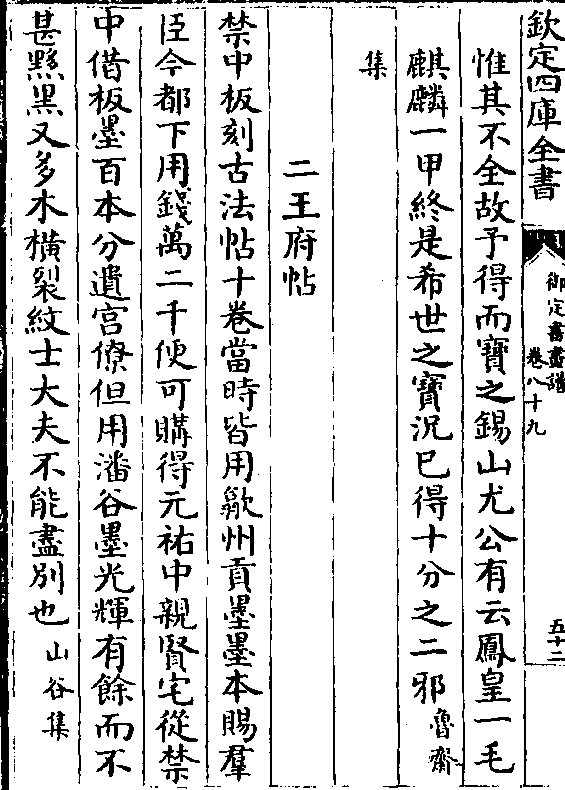 欽定四庫全書
御定書畫譜
卷八十九
五十二
惟其不全故予得而寶之錫山尤公有云鳳皇一毛
麒麟一甲終是希世之寶況已得十分之二邪魯齋
集
二王府帖
禁中板刻古法帖十卷當時皆用歙州貢墨墨本賜羣
臣今都下用錢萬二千便可購得元祐中親賢宅從禁
中借板墨百本分遺宫僚但用潘谷墨光輝有餘而不
甚黟黑又多木橫裂紋士大夫不能盡别也山谷集